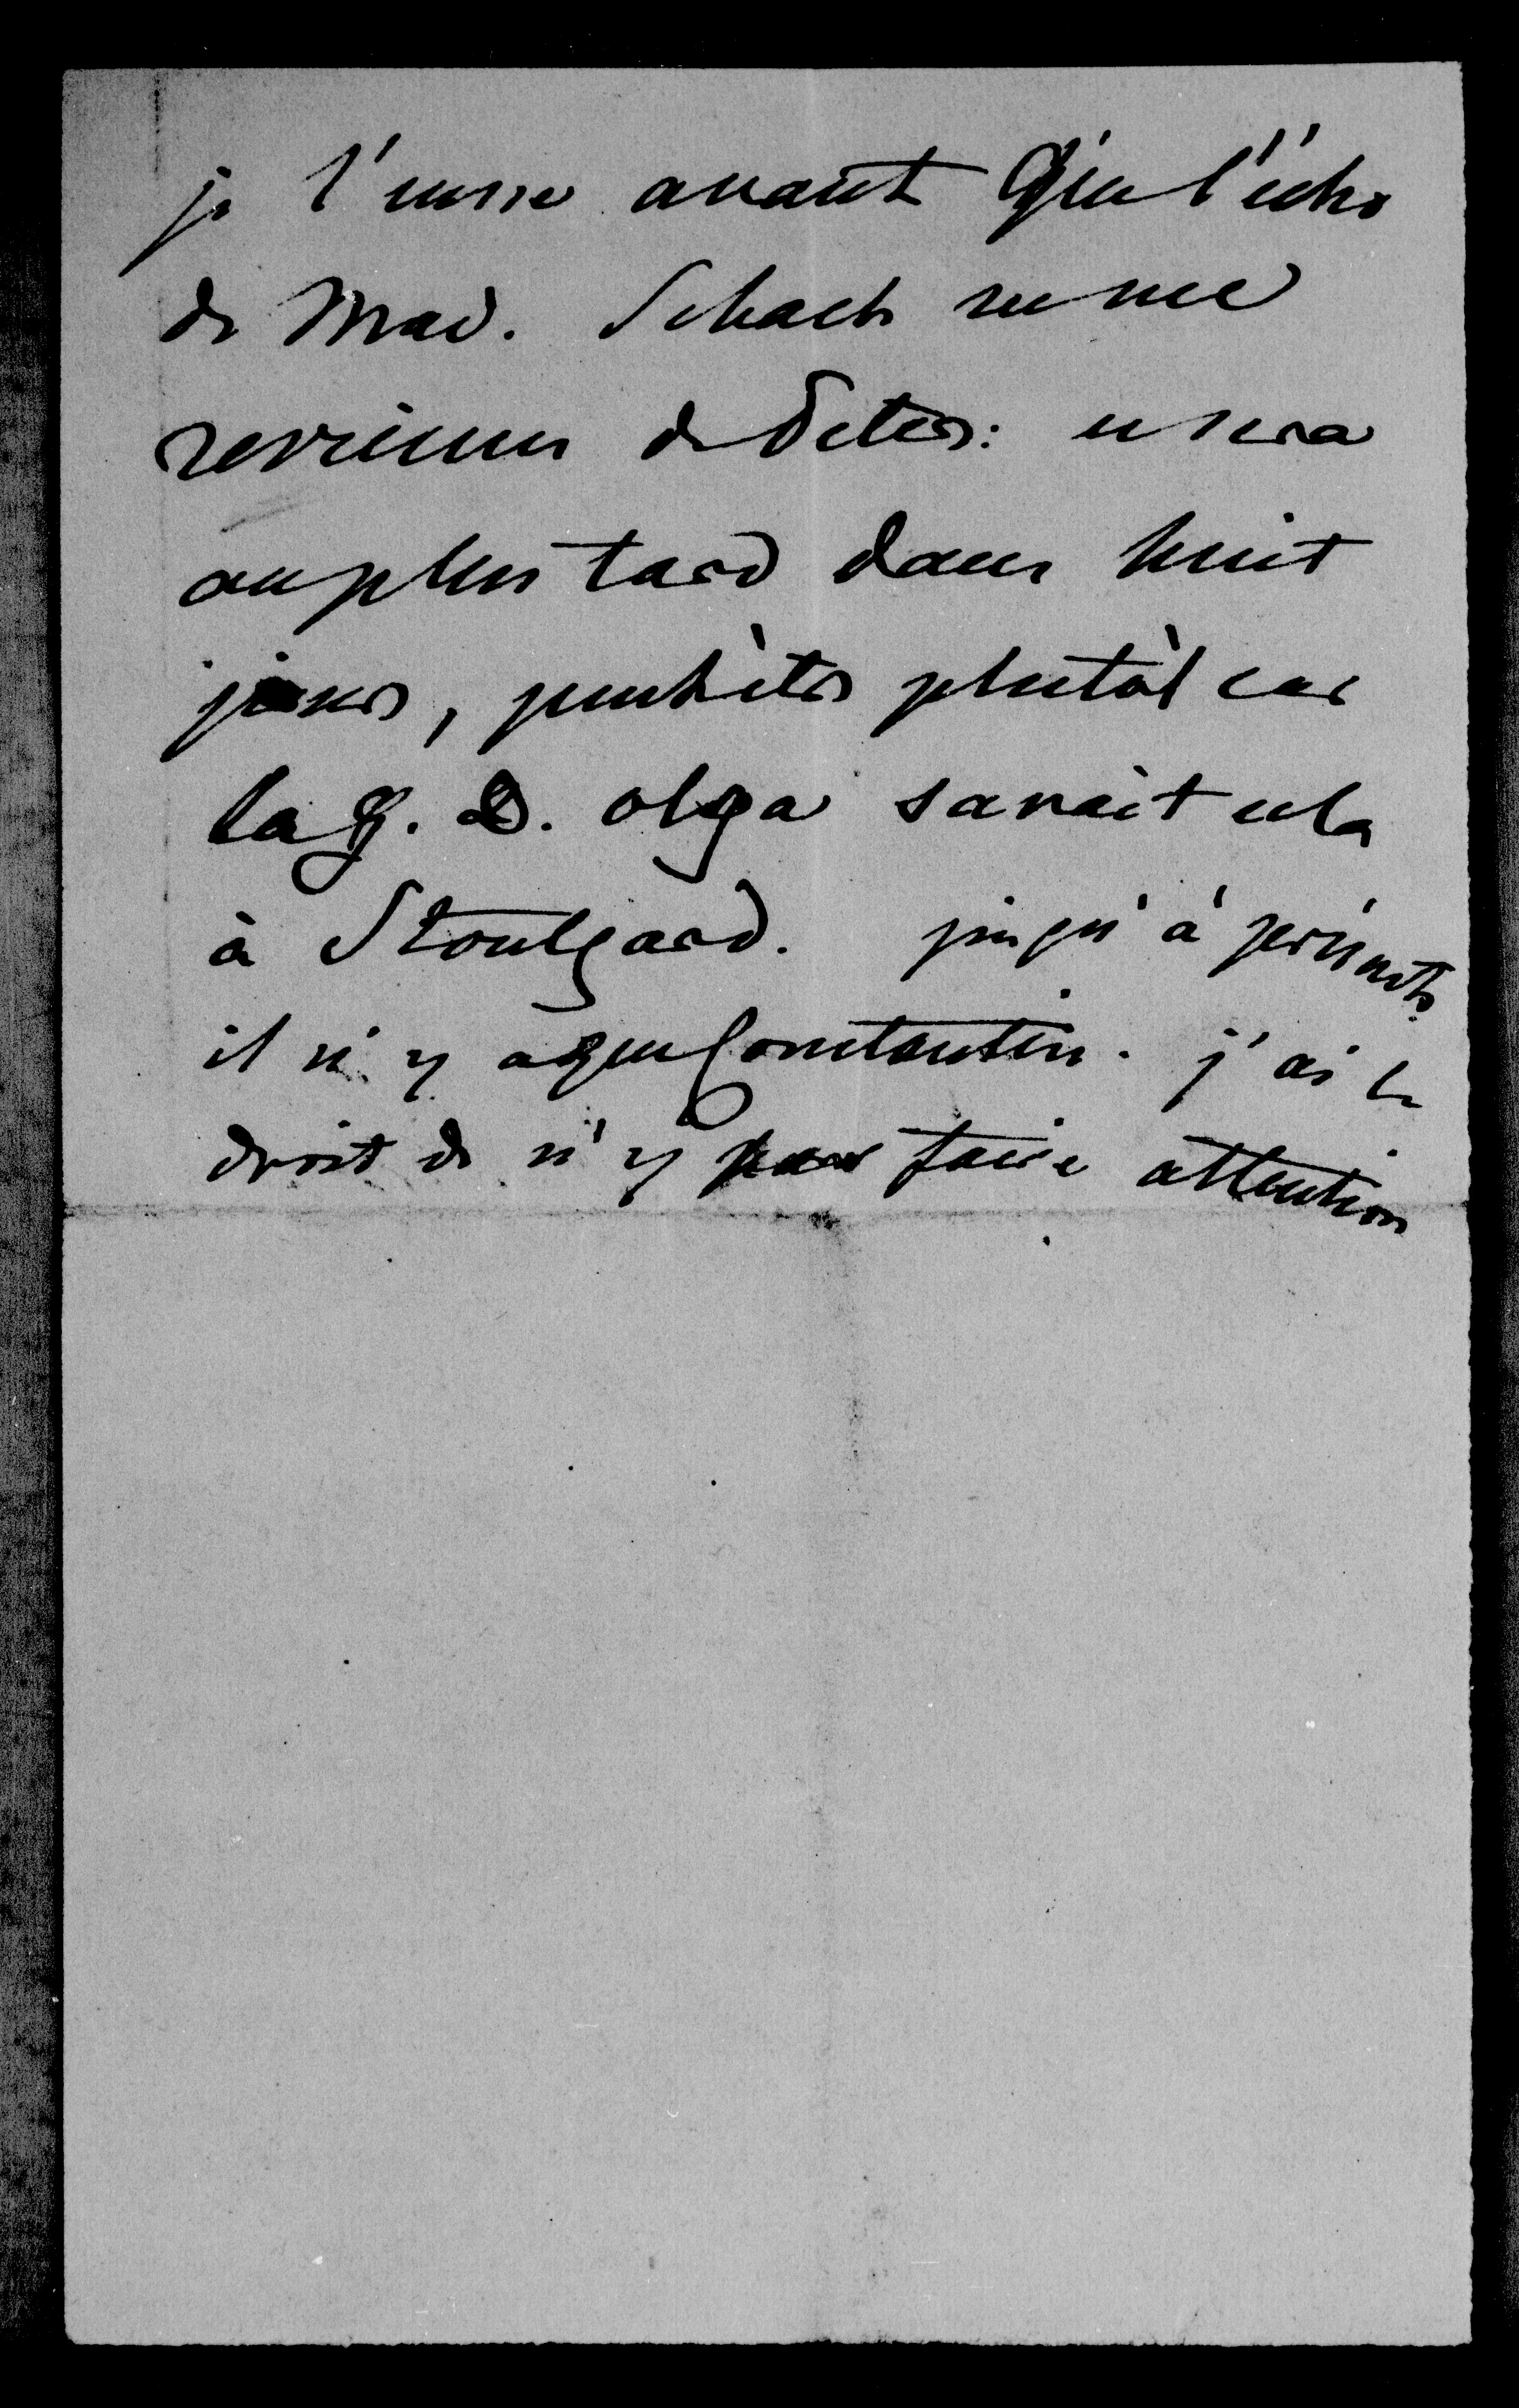 je l'eusse avant que l'écho
de Mad. Schach ne me
revienne de Peters: ce sera
au plus tard dans huit
jours, peutêtre plutôt car
la G. D. Olga savait cela
à Stoutgard. jusqu'à présent
il n'y a que Constantin. j'ai le
droit de n'y pas faire attention